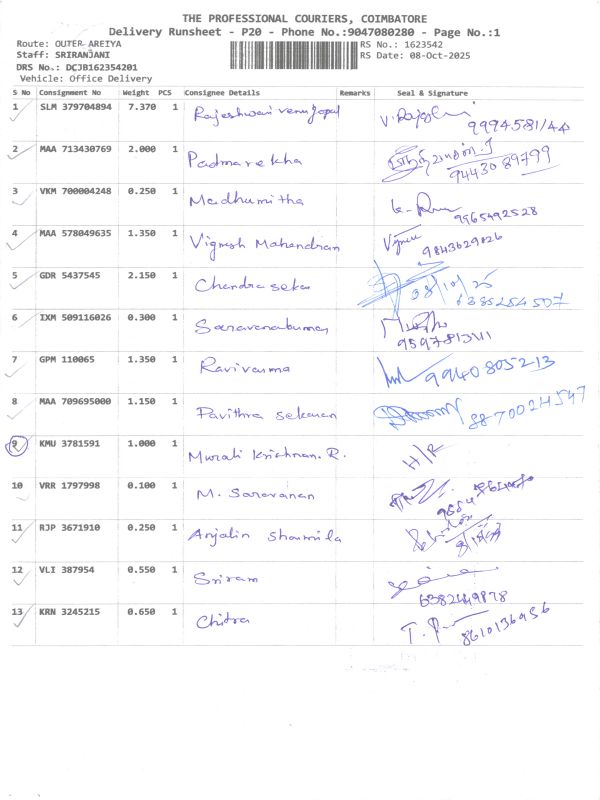 THE PROFESSIONAL COURIERS, COIMBATORE
Delivery Runsheet - P20 - Phone No.:9047080280 - Page No.:1
Route: OUTER AREIYA
RS No.: 1623542
Staff: SRIRANJANI
RS Date: 08-Oct-2025
DRS No.: DCJB162354201
Vehicle: Office Delivery
S No Consignment No Weight PCS Consignee Details Remarks Seal & Signature
1 SLM 379704894 7.370 1 Rajeshwari venugopal V. 9994581144
2 MAA 713430769 2.000 1 Padmarekha 9443089799
3 VKM 700004248 0.250 1 Madhumitha 9965492528
4 MAA 578049635 1.350 1 Vignesh Mahendran Vignesh 9843629826
5 GDR 5437545 2.150 1 Chandrasekar 08/10/25
6385254507
6 IXM 509116026 0.300 1 Saravanakumar
7 GPM 110065 1.350 1 Ravivarma 9940805213
8 MAA 709695000 1.150 1 Pavithra sekaran 8870024547
9 KMU 3781591 1.000 1 Murali Krishnan. R. H/R
10 VRR 1797998 0.100 1 M. Saravanan
11 RJP 3671910 0.250 1 Anjalin Sharmila
12 VLI 387954 0.550 1 Sriram
6382449878
13 KRN 3245215 0.650 1 Chitra 8610136956